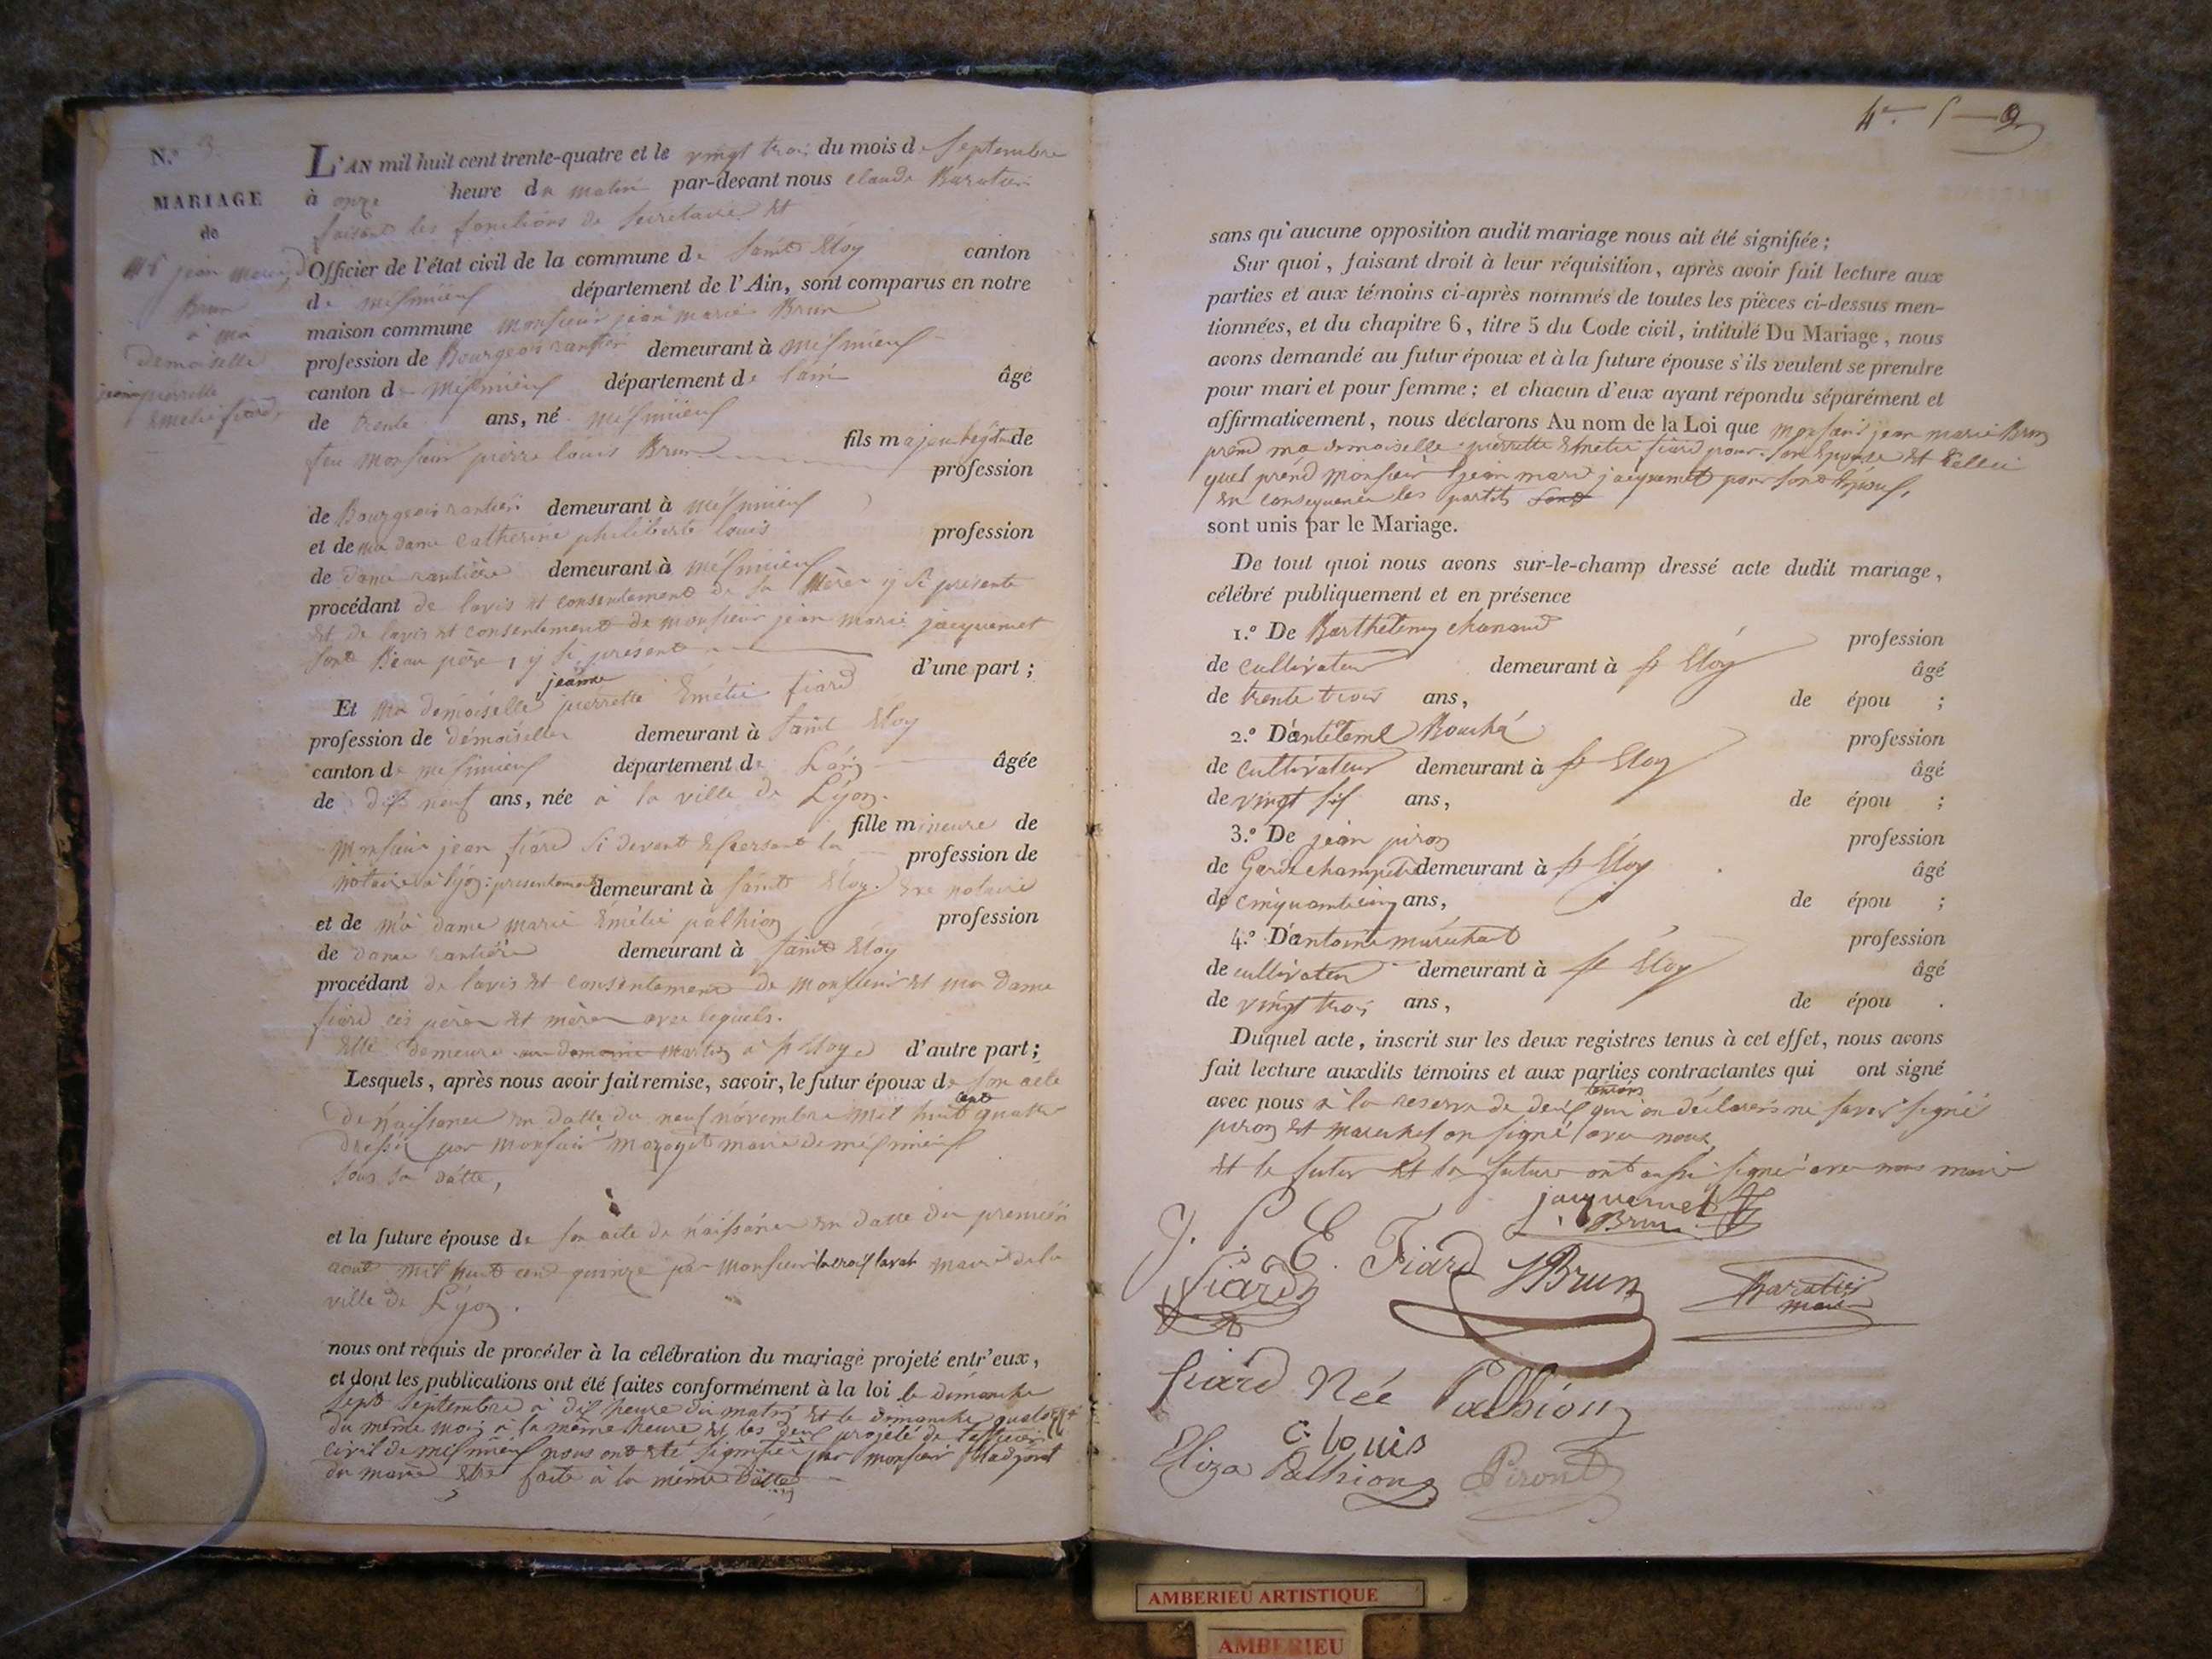 N.° 3
MARIAGE
de
Mr jean marie
Brun
à ma
demoiselle
jeanne pierrette
Emelie fiard
L'AN mil huit cent trente-quatre et le vingt trois du mois de Septembre
à onze heure du matin par-devant nous claude Baratier
faisant les fonctions de Secretaire et
Officier de l'état civil de la commune de Saint Eloy canton
de mésimieux département de l'Ain, sont comparus en notre
maison commune monsieur jean marie Brun
profession de Bourgeois rantier demeurant à mésimieux
canton de mésimieux département de l'ain âgé
de trente ans, né mésimieux
fils majeur légitime de
feu monsieur pierre louis Brun
profession
de Bourgeois rantier demeurant à mésimieux
et de ma dame catherine philiberte louis profession
de dame rantière demeurant à mésimieux
procédant de lavis et consentement de sa mère y si présente
et de lavis et consentement de monsieur jean marie jacquemet
sont Beau père, y si present d'une part ;
jeanne
Et ma demoiselle pierrette Emélie fiard
profession de démoiselle demeurant à Saint Eloy
canton de mésimieux département de L'ain âgée
de dix neuf ans, née à la ville de Lyon.
fille mineure de
Monsieur jean fiard si devant exersant la profession de
notaire à lyon : presentement demeurant à Saint Eloy. exe notaire
et de ma dame marie émélie palhion profession
de dame rantière demeurant à Saint Eloy
procédant de lavis et consentement de monsieur et ma dame
fiard ces père et mère avec lequels.
Elle demeure à st Eloy d'autre part ;
Lesquels, après nous avoir fait remise, savoir, le futur époux de son acte
de naissance en datte du neuf novembre mil huit cent quatre
dressé par monsieur mayoyet maire de mésimieux
sous sa datte,
et la future épouse de son acte de naissance en datte du premier
aout mil huit cent quinze par monsieur maire de la
ville de Lyon.
nous ont requis de procéder à la célébration du mariage projeté entr'eux,
et dont les publications ont été faites conformément à la loi le dimanche
sept septembre à dix heure du matin et le dimanche quatorze
du même mois à la même heure et les deux projeté de l'officier
civil de mésimieux nous ont été signifié par monsieur l'adjoint
du maire etre faite à la même datte
4e. f 2
sans qu'aucune opposition audit mariage nous ait été signifiée ;
Sur quoi, faisant droit à leur réquisition, après avoir fait lecture aux
parties et aux témoins ci-après nommés de toutes les pièces ci-dessus men-
tionnées, et du chapitre 6, titre 5 du Code civil, intitulé Du Mariage, nous
avons demandé au futur époux et à la future épouse s'ils veulent se prendre
pour mari et pour femme ; et chacun d'eux ayant répondu séparément et
affirmativement, nous déclarons Au nom de la Loi que monsieur jean marie Brun
prend ma demoiselle pierrette Emelie fiard pour son Epouse et Celleci
quel prend monsieur jean marie jacquemet pour sont Epoux,
en consequence les partits sont
sont unis par le Mariage.
De tout quoi nous avons sur-le-champ dressé acte dudit mariage,
célébré publiquement et en présence
1.° De Barthelemy chanaud profession
de cultivateur demeurant à st Eloy âgé
de trente trois ans, de épou ;
2.° D'antelme Bouché profession
de cultivateur demeurant à st Eloy âgé
de vingt six ans, de épou ;
3.° De jean piron profession
de Garde champetre demeurant à st Eloy âgé
de cinquante cinq ans, de épou ;
4.° D'antoine maréchal profession
de cultivateur demeurant à st Eloy âgé
de vingt trois ans, de épou .
Duquel acte, inscrit sur les deux registres tenus à cet effet, nous avons
fait lecture auxdits témoins et aux parties contractantes qui ont signé
temoins
avec nous à la reserve de deux qui on déclarer ne savoir signé
piron et marechal on signé avec nous
et le futur et la future ont aussi signé avec nous maire
jacquemet
Brun
J. P. E. Fiard
Fiard
Brun
Baratier
maire
fiard Née Palhion
c. louis
Eliza Palhion
Piront
AMBERIEU ARTISTIQUE
AMBERIEU